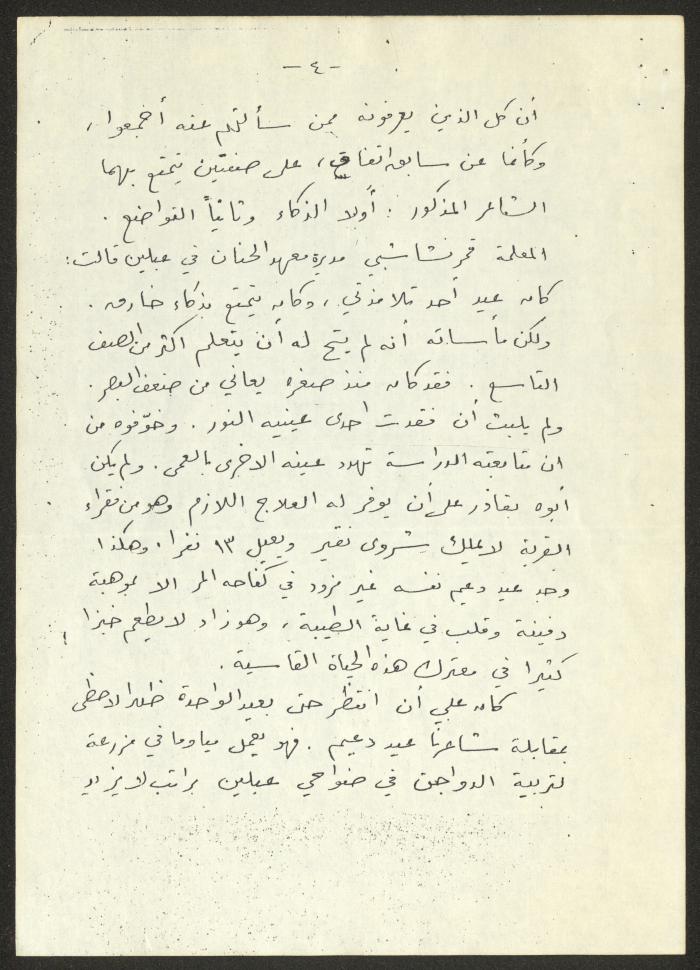 - ٤ -
أن كل الذين يعرفونه ممن سألتهم عنه أجمعوا،
وكأنما عن سابق اتفاق، على صفتين يتمتع بهما
الشاعر المذكور: أولا الذكاء وثانياً التواضع.
المعلمة قمر نشاشيبي مديرة معهد الحنان في عبلين قالت:
كان عيد أحد تلامذتي، وكان يتمتع بذكاء خارق.
ولكن مأساته أنه لم يتح له أن يتعلم اكثر من الصف
التاسع. فقد كان منذ صغره يعاني من ضعف البصر.
ولم يلبث أن فقدت احدى عينيه النور. وخوّفوه من
ان متابعته الدراسة تهدد عينه الاخرى بالعمى. ولم يكن
أبوه بقادر على أن يوفر له العلاج اللازم وهو من فقراء
القرية لا يملك شروى نقير ويعيل ١٣ نفرا. وهكذا
وجد عيد دعيم نفسه غير مزود في كفاحه المر الا بموهبة
دفينة وقلب في غاية الطيبة، وهو زاد لا يطعم خبزا
كثيرا في معترك هذه الحياة القاسية.
كان علي أن انتظر حتى بعيد الواحدة ظهرا لاحظى
بمقابلة شاعرنا عيد دعيم. فهو يعمل مياوما في مزرعة
لتربية الدواجن في ضواحي عبلين براتب لا يزيد